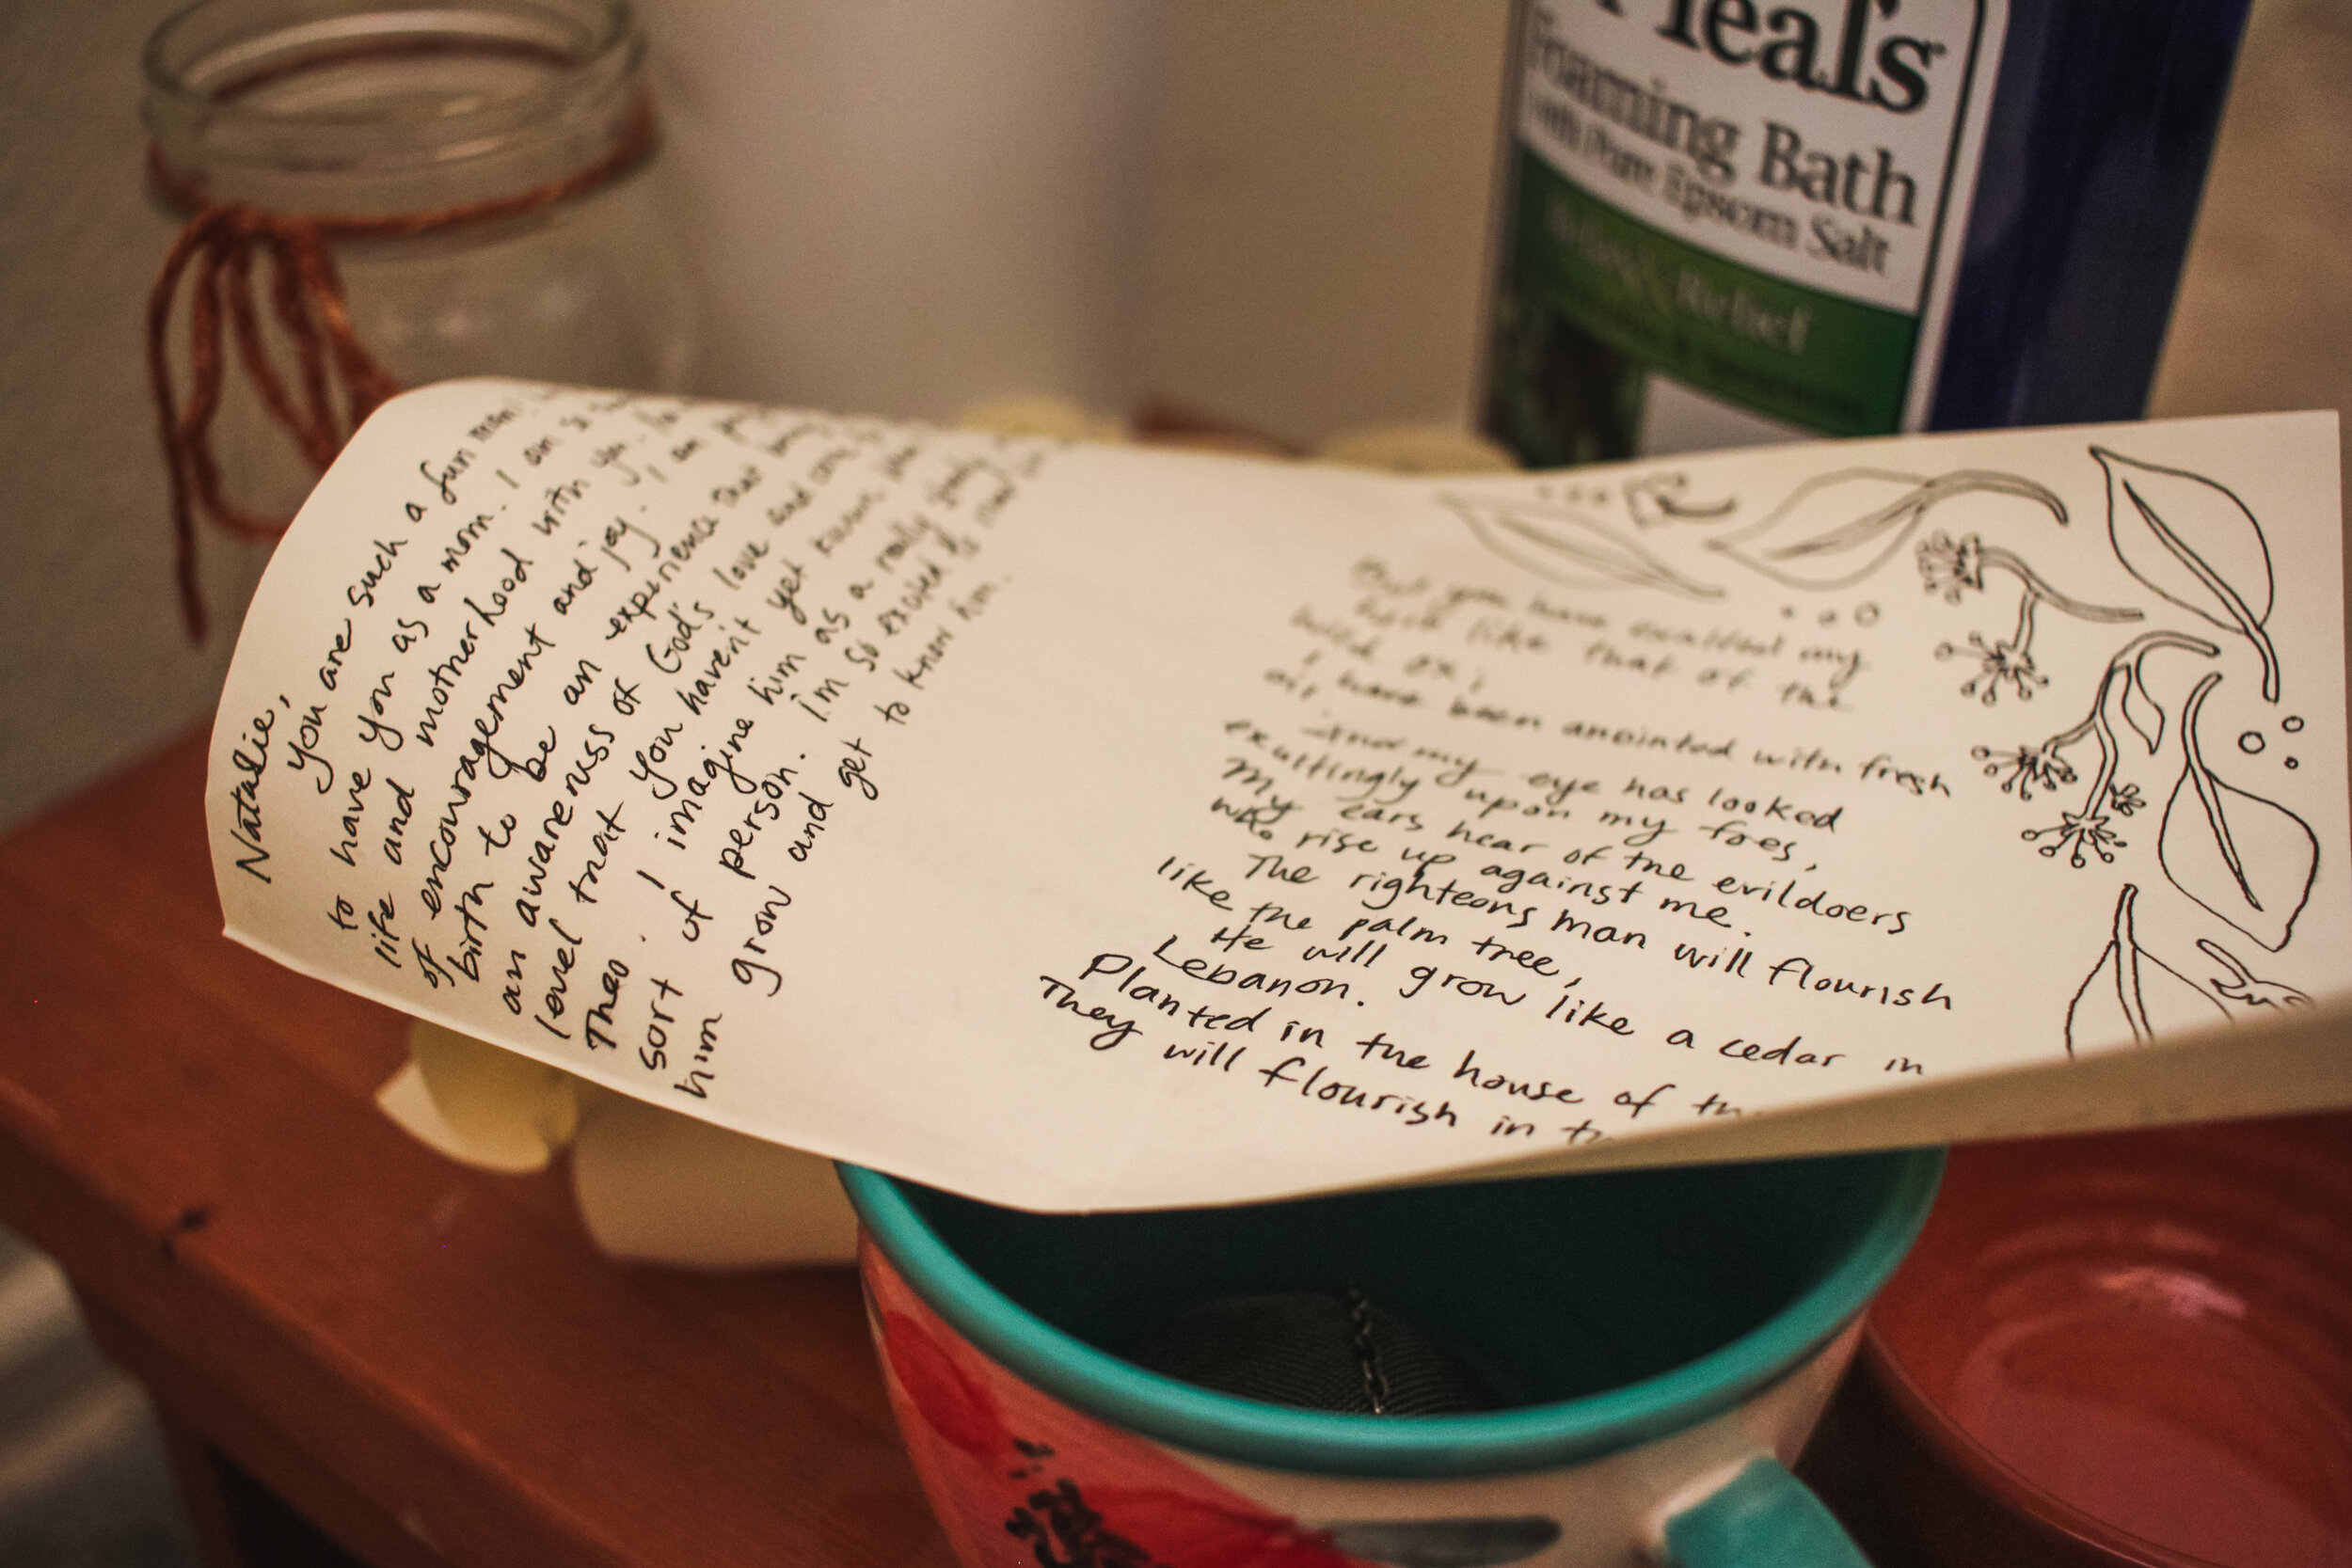 Natalie,
you are such a fun mom!
to have you as a mom. I am so
life and motherhood with you.
of encouragement and joy. I am
birth to be an experience that
an awareness of God's love and
level that you haven't yet known.
Theo. I imagine him as a really
sort of person. I'm so excited to
him grow and get to know him.
But you have exalted my
horn like that of the
wild ox;
I have been anointed with fresh
oil.
And my eye has looked
exultingly upon my foes,
My ears hear of the evildoers
who rise up against me.
The righteous man will flourish
like the palm tree,
He will grow like a cedar in
Lebanon.
Planted in the house of
They will flourish in
Teal's
Foaming Bath
with Pure Epsom Salt
Relax & Relief